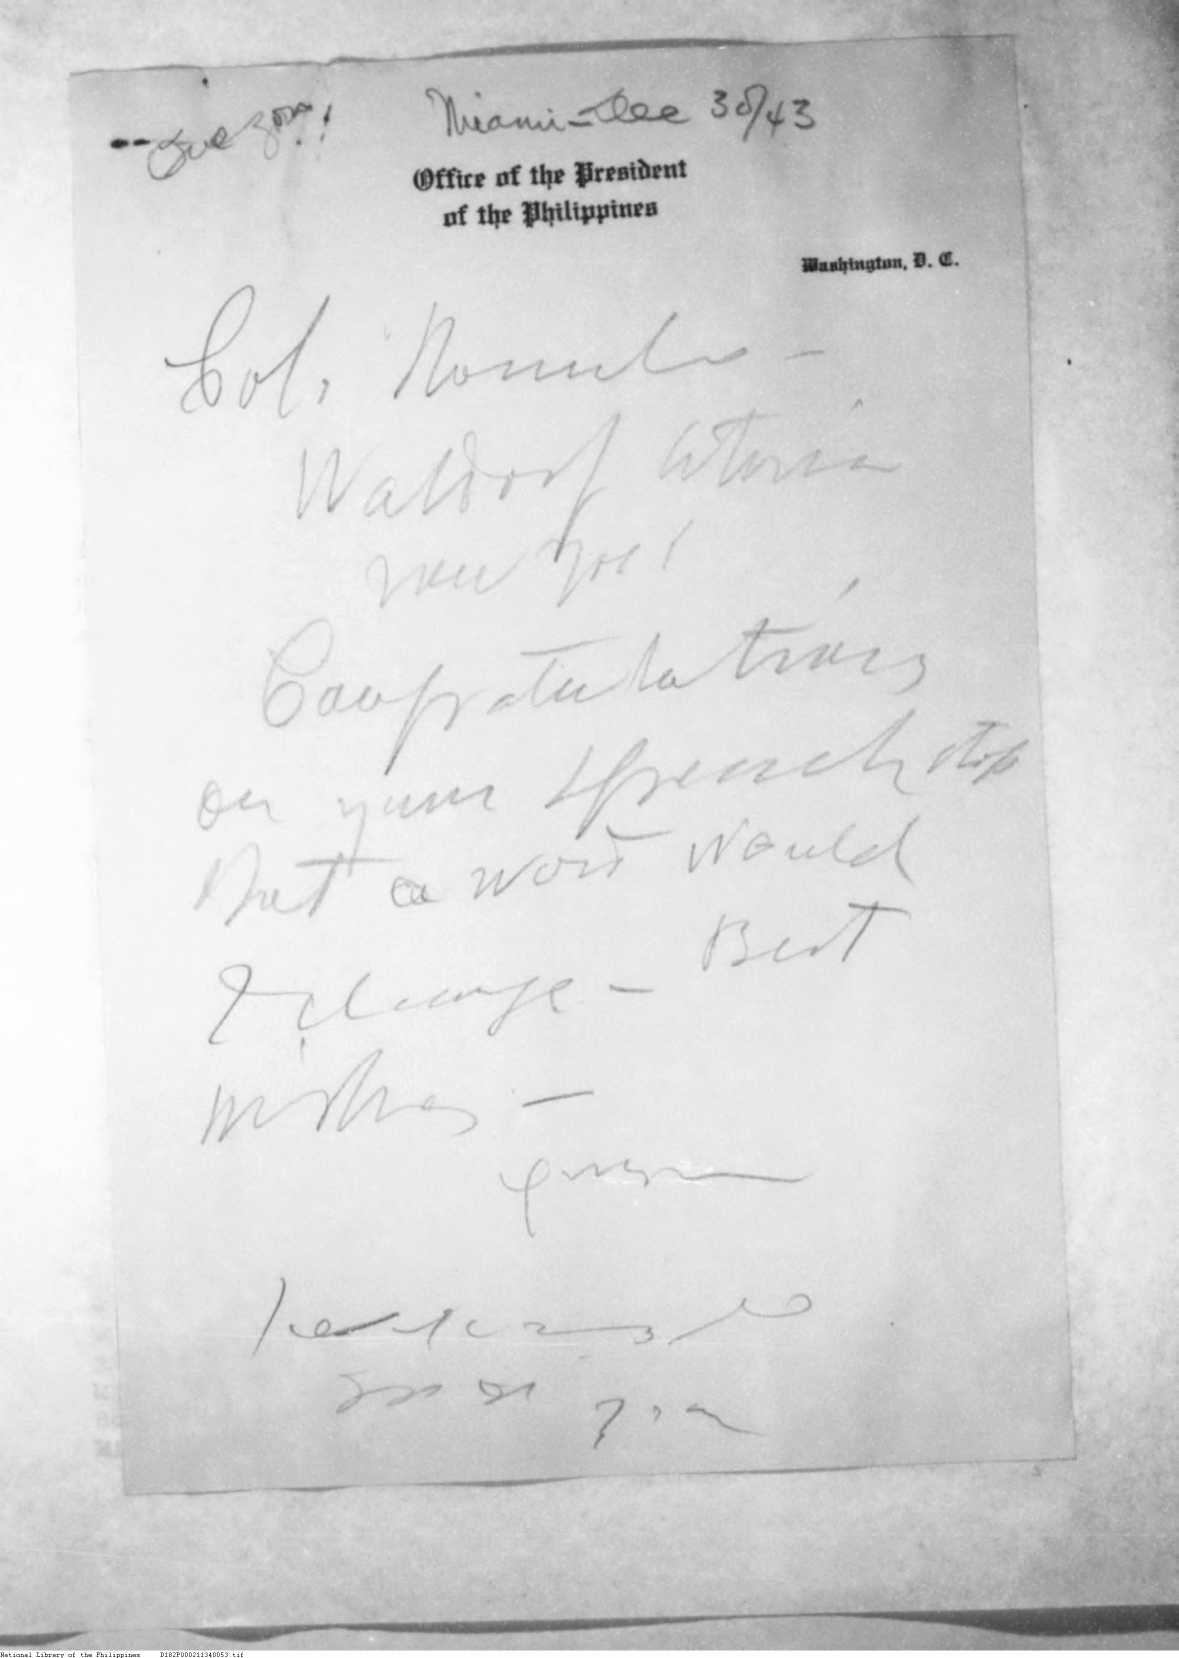 Quezon! Miami - Dec 30/43
Office of the President
of the Philippines
Washington, D. C.
Col. Romulo -
Waldorf Astoria
New York
Congratulations
on your speech stop
Not a word would
I change - Best
wishes -
Quezon
National Library of the Philippines D182P000211340053.tif